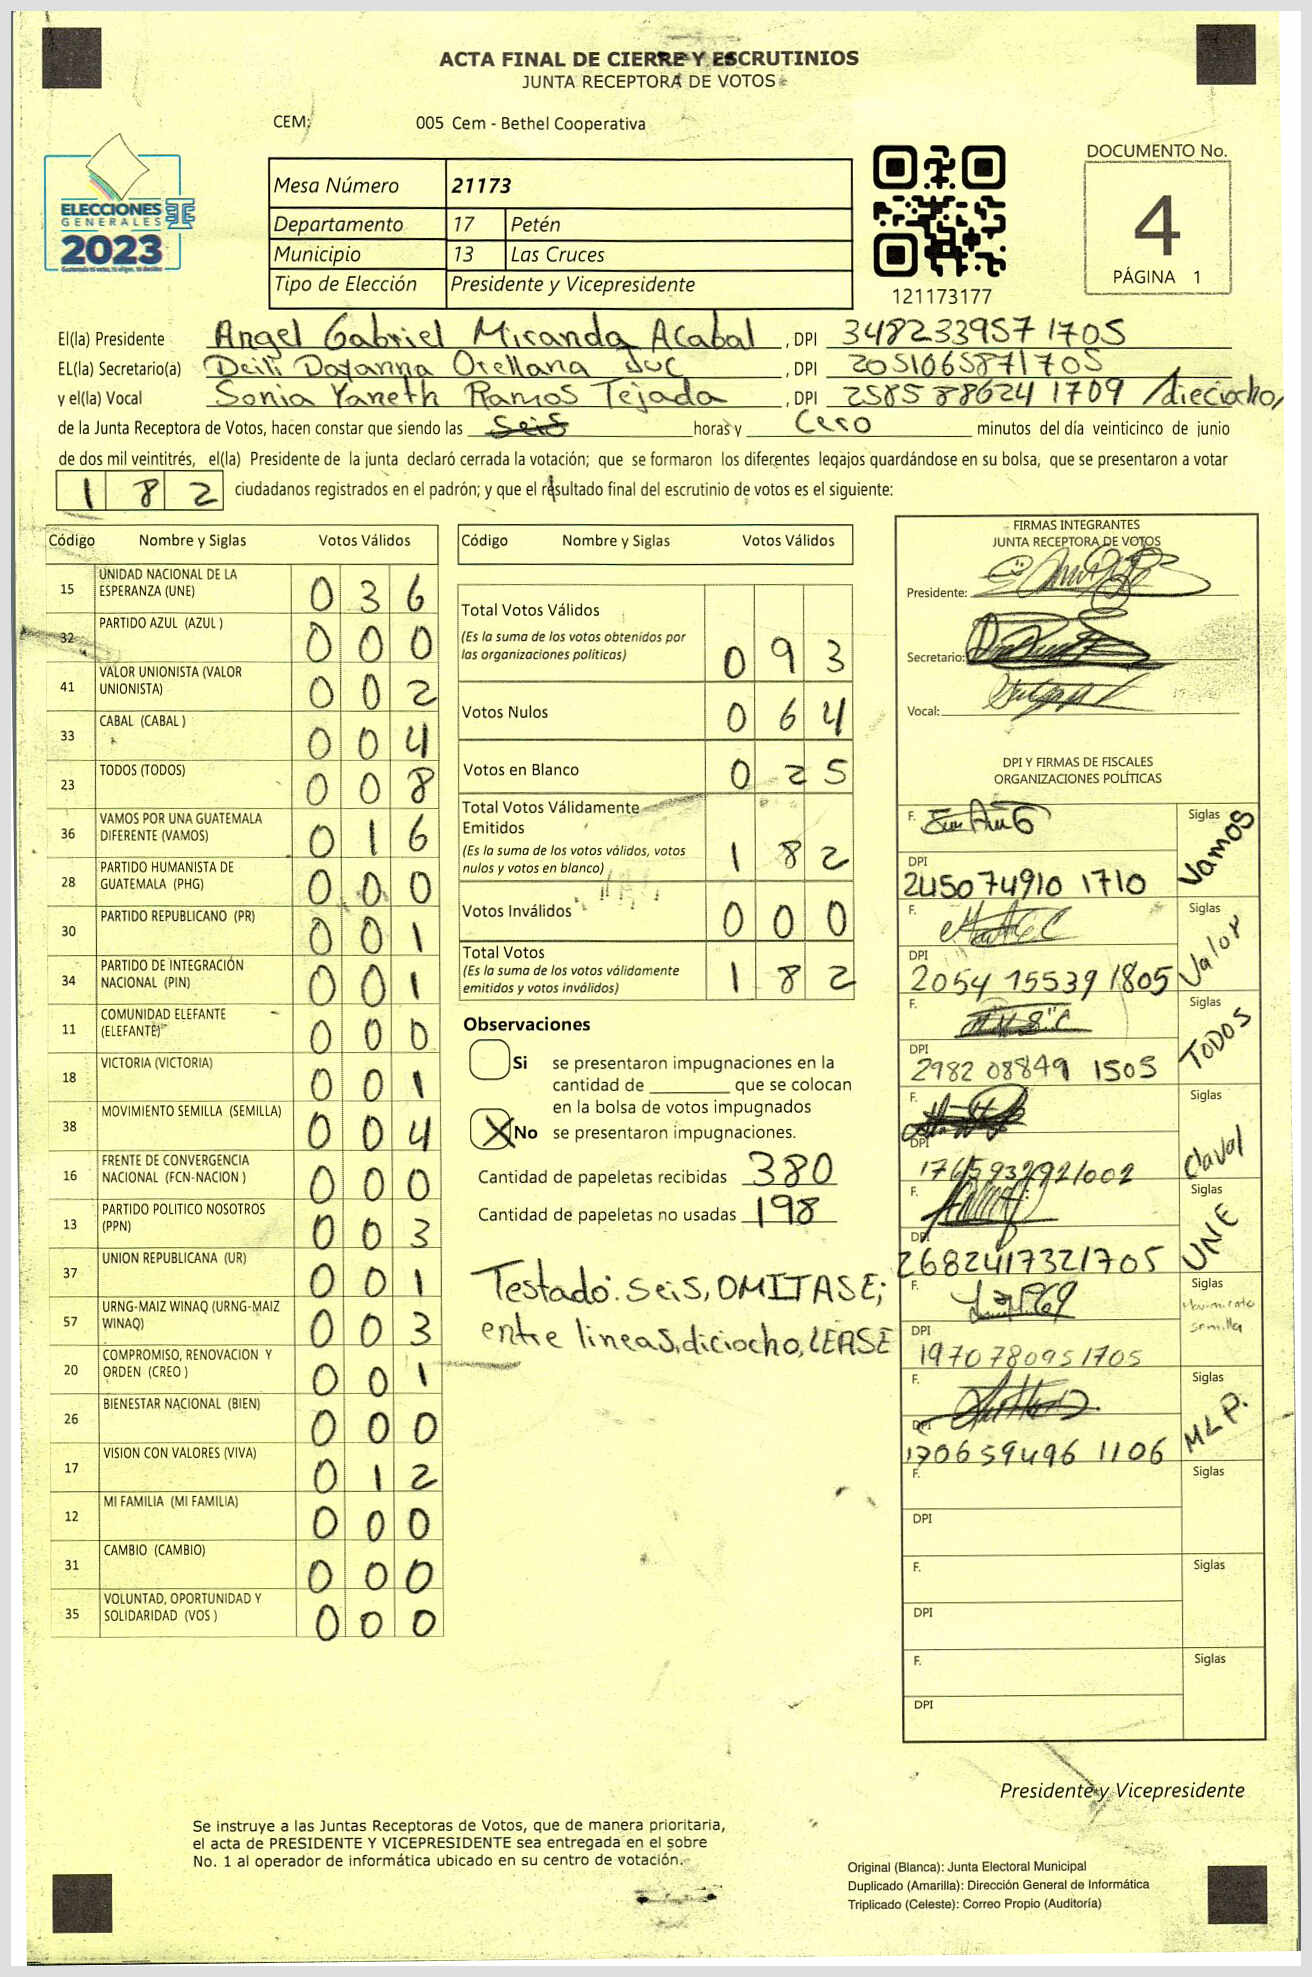 ACTA FINAL DE CIERRE Y ESCRUTINIOS
JUNTA RECEPTORA DE VOTOS
CEM: 005 Cem - Bethel Cooperativa
ELECCIONES
GENERALES
2023
Mesa Número 21173
Departamento 17 Petén
Municipio 13 Las Cruces
Tipo de Elección Presidente y Vicepresidente
121173177
DOCUMENTO No.
4
PÁGINA 1
El(la) Presidente Angel Gabriel Miranda Acabal, DPI 3482339571705
EL(la) Secretario(a) Deili Dayanna Orellana Suc, DPI 2051065871705
y el(la) Vocal Sonia Yaneth Ramos Tejada, DPI 2585886241709 /dieciocho,
de la Junta Receptora de Votos, hacen constar que siendo las seis horas y cero minutos del día veinticinco de junio
de dos mil veintitrés, el(la) Presidente de la junta declaró cerrada la votación; que se formaron los diferentes legajos quardándose en su bolsa, que se presentaron a votar
182 ciudadanos registrados en el padrón; y que el resultado final del escrutinio de votos es el siguiente:
Código Nombre y Siglas Votos Válidos
15 UNIDAD NACIONAL DE LA ESPERANZA (UNE) 036
32 PARTIDO AZUL (AZUL ) 000
41 VALOR UNIONISTA (VALOR UNIONISTA) 002
33 CABAL (CABAL ) 004
23 TODOS (TODOS) 008
36 VAMOS POR UNA GUATEMALA DIFERENTE (VAMOS) 016
28 PARTIDO HUMANISTA DE GUATEMALA (PHG) 000
30 PARTIDO REPUBLICANO (PR) 001
34 PARTIDO DE INTEGRACIÓN NACIONAL (PIN) 001
11 COMUNIDAD ELEFANTE (ELEFANTE) 000
18 VICTORIA (VICTORIA) 001
38 MOVIMIENTO SEMILLA (SEMILLA) 004
16 FRENTE DE CONVERGENCIA NACIONAL (FCN-NACION ) 000
13 PARTIDO POLITICO NOSOTROS (PPN) 003
37 UNION REPUBLICANA (UR) 001
57 URNG-MAIZ WINAQ (URNG-MAIZ WINAQ) 003
20 COMPROMISO, RENOVACION Y ORDEN (CREO ) 001
26 BIENESTAR NACIONAL (BIEN) 000
17 VISION CON VALORES (VIVA) 012
12 MI FAMILIA (MI FAMILIA) 000
31 CAMBIO (CAMBIO) 000
35 VOLUNTAD, OPORTUNIDAD Y SOLIDARIDAD (VOS ) 000
Código Nombre y Siglas Votos Válidos
Total Votos Válidos
(Es la suma de los votos obtenidos por
las organizaciones políticas) 093
Votos Nulos 064
Votos en Blanco 025
Total Votos Válidamente
Emitidos
(Es la suma de los votos válidos, votos
nulos y votos en blanco) 182
Votos Inválidos 000
Total Votos
(Es la suma de los votos válidamente
emitidos y votos inválidos) 182
Observaciones
Si se presentaron impugnaciones en la
cantidad de ________ que se colocan
en la bolsa de votos impugnados
X No se presentaron impugnaciones.
Cantidad de papeletas recibidas 380
Cantidad de papeletas no usadas 198
Testado: seis, OMITASE;
entre lineas, diciocho, LEASE
FIRMAS INTEGRANTES
JUNTA RECEPTORA DE VOTOS
Presidente:
Secretario:
Vocal:
DPI Y FIRMAS DE FISCALES
ORGANIZACIONES POLÍTICAS
F. Siglas Vamos
DPI 245074910 1710
F. Siglas Valor
DPI 2054 15539 1805
F. Siglas TODOS
DPI 2982 08849 1505
F. Siglas Caval
DPI 1765932921002
F. Siglas UNE
DPI 2682417321705
F. Siglas Movimiento semilla
DPI 1970780951705
F. Siglas MLP.
DPI 170659496 1106
F. Siglas
DPI
F. Siglas
DPI
F. Siglas
DPI
Presidente y Vicepresidente
Se instruye a las Juntas Receptoras de Votos, que de manera prioritaria,
el acta de PRESIDENTE Y VICEPRESIDENTE sea entregada en el sobre
No. 1 al operador de informática ubicado en su centro de votación.
Original (Blanca): Junta Electoral Municipal
Duplicado (Amarilla): Dirección General de Informática
Triplicado (Celeste): Correo Propio (Auditoría)